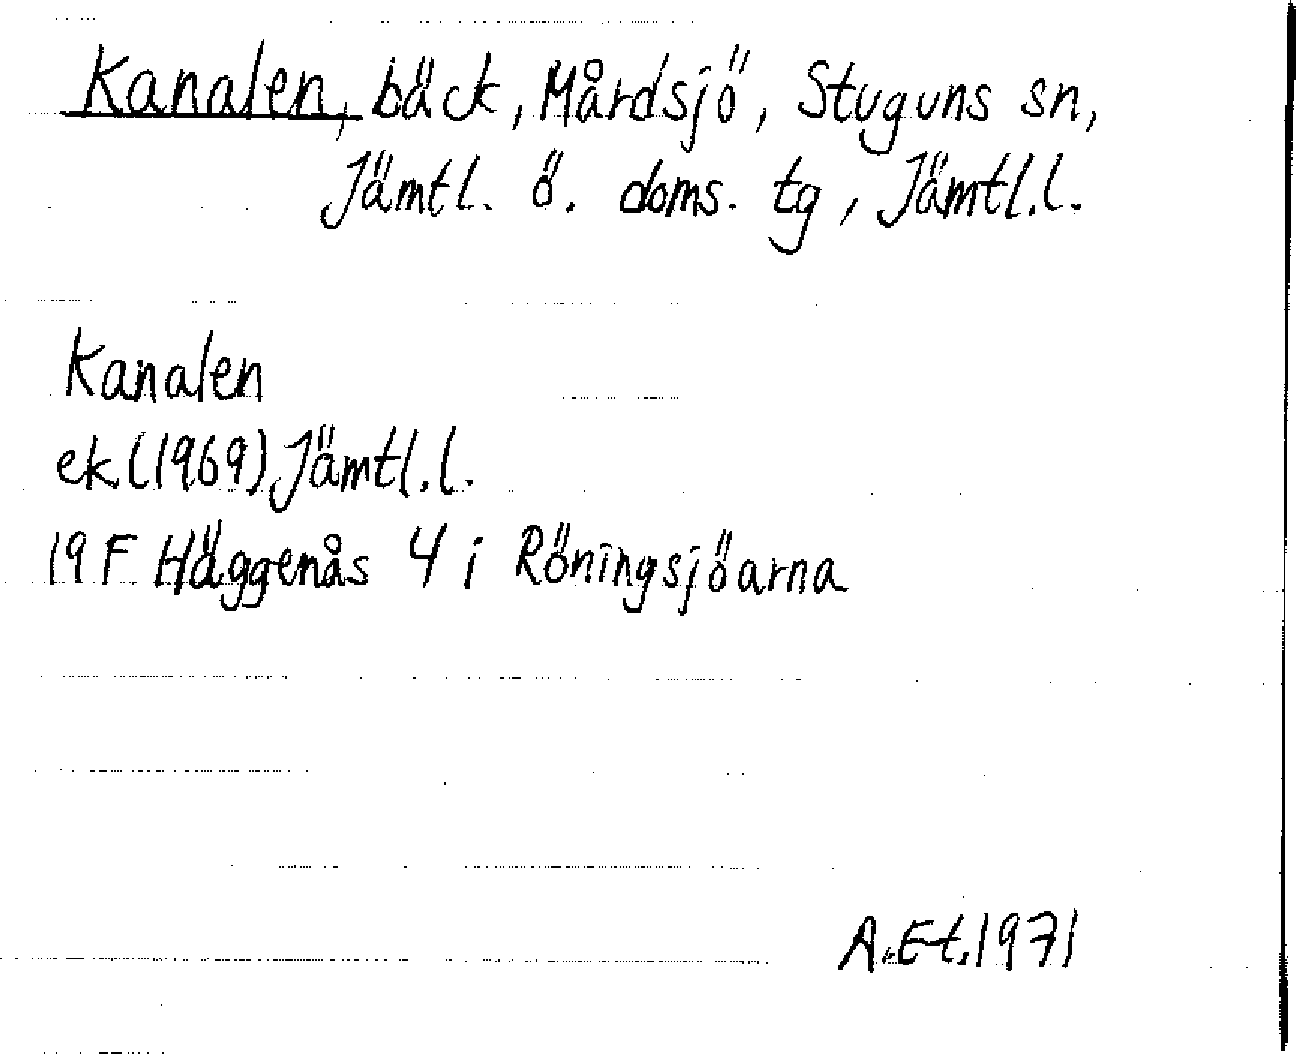 Kanalen, bäck, Mårdsjö, Stuguns sn,
Jämtl. ö. doms. tg, Jämtl.l.
Kanalen
ek(1969)Jämtl.l.
19F Häggenås 4 i Röningsjöarna
A.Et.1971